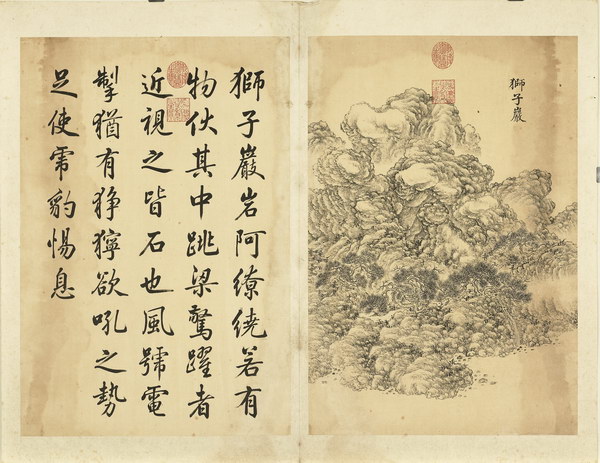 獅子巖
獅子巖岩阿繚繞若有
物伏其中跳梁驚躍者
近視之皆石也風號電
掣猶有猙獰欲吼之勢
足使豹惕息